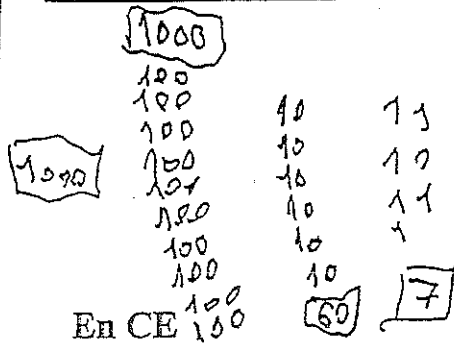 1000
100
100
100
100
100
100
100
100
100
100
1000
10
10
10
10
10
10
60
1 1
1 1
1 1
1
7
En CE